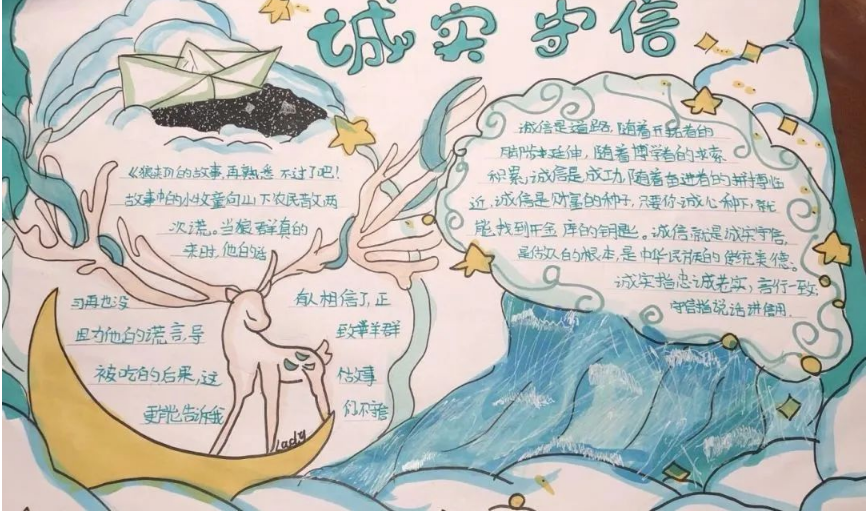 诚实守信
狼来了的故事,再熟悉不过了吧!
故事中的小牧童向山下农民喊两
次谎。当狼群真的
来时,他的话
再也没有人相信了,正
他的谎言,导致羊群
被吃的后果,这故事
更能告诉我们不
Lady
诚信是道路,随着开拓者的
脚步延伸,随着博学者的求索
积累,诚信是成功,随着奋进者的拼搏临
近,诚信是财富的种子,只要你诚心种下,就
能找到开金库的钥匙。诚信就是诚实守信,
是做人的根本,是中华民族的优充美德。
诚实指忠诚老实,言行一致,
守信指说话讲信用.